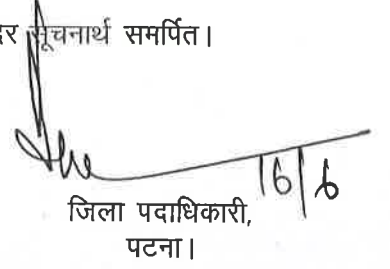 सूचनार्थ समर्पित।
16/6
जिला पदाधिकारी,
पटना।